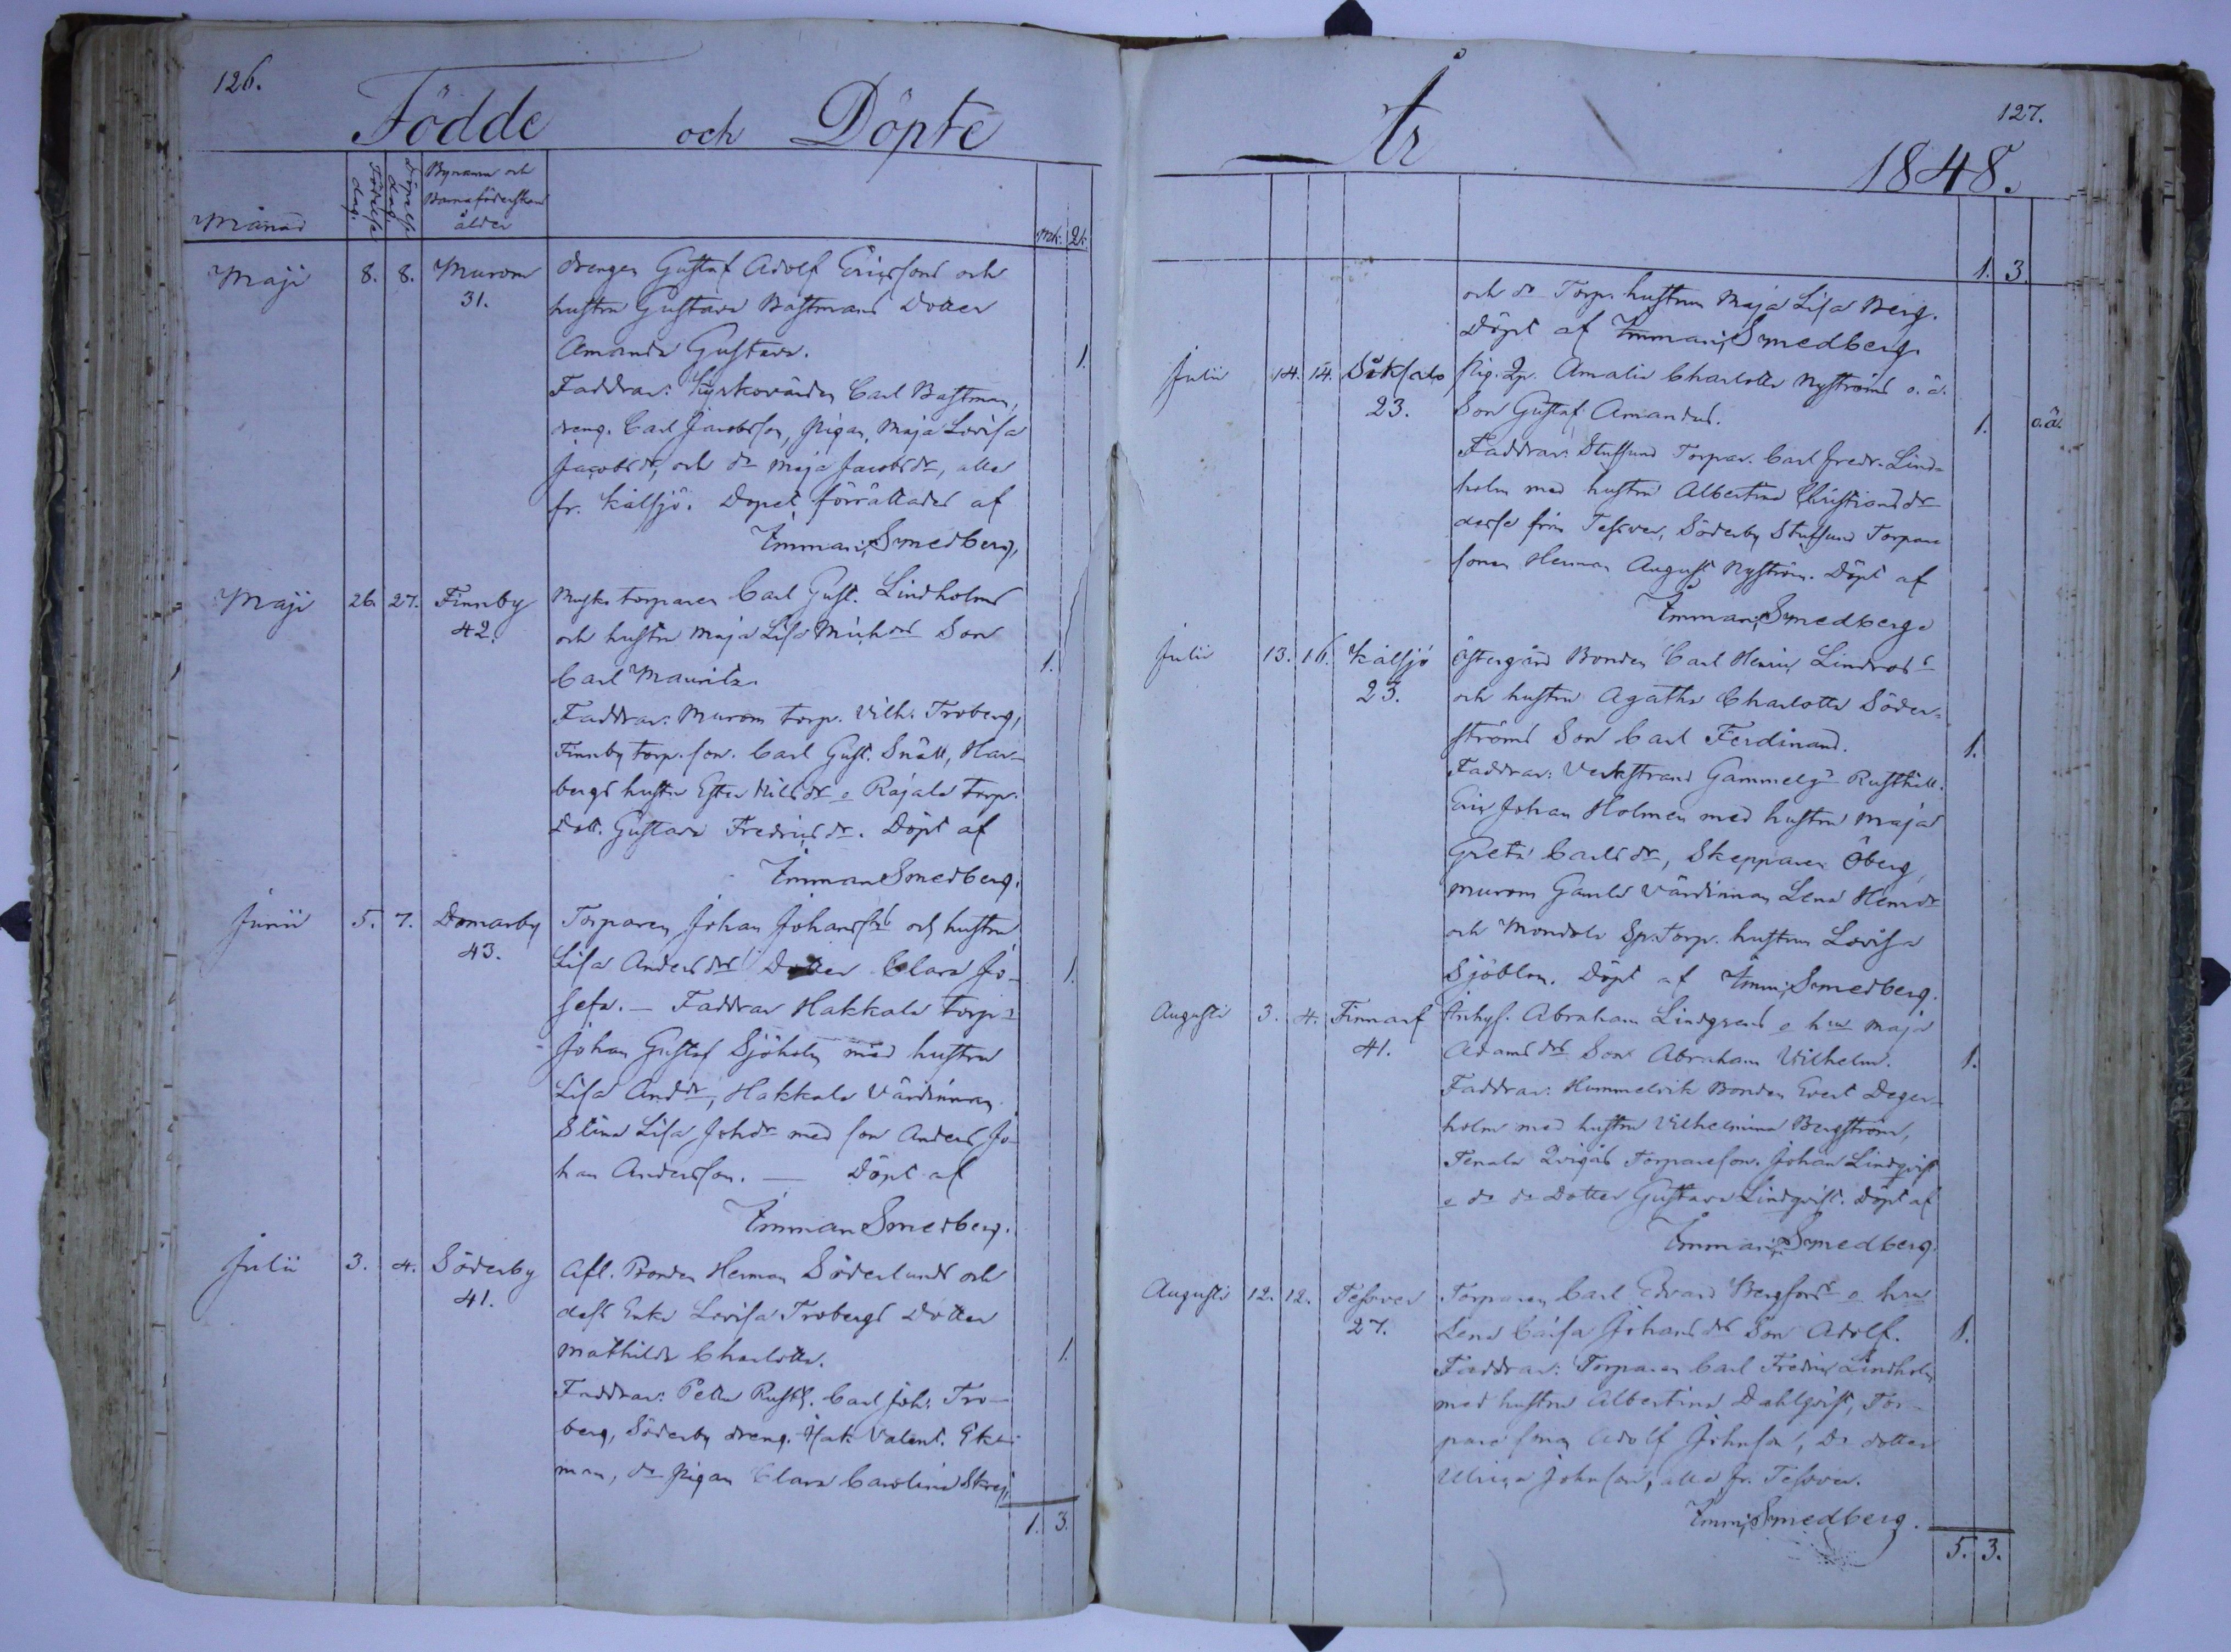 126.
Födde och Döpte
Månad
Födelse dag.
Döpelse dag.
Bynamn och
Barnaföderskans
ålder
Mk. Qk.
Maji 8. 8. Murom drengen Gustaf Adolf Ericssons och
31. hustru Gustava Bastmans Dotter
Amanda Gustava. 1.
Faddrar: Kyrkovärden Carl Bastman,
dreng. Carl Jacobsson, Pigan, Maja Lovisa
Jacobsdr, och do Maja Jacobsdr, alla
fr. Kälsjö. Dopet förrättades af
Smedberg,
Maji 26 27. Finnby torparen Carl Gust. Lindholms
42. och hustru Maja Lisa Son
Carl Mauritz. 1.
Faddrar: Murom torp. Vilh. Troberg,
Finnby torp. son. Carl Gust. Snäll, Har-
bergs hustru Ester Nilsdr o Rajala torp.
Dott. Gustava Fredricsdr. Döpt af
Imman Smedberg.
Junii 5. 7. Domarby Torparen Johan Johanss och hustru
43. Lisa Andersdrs Dotter Clara Jo- 1.
sefa. — Faddrar Hakkala torp:
Johan Gustaf Sjöholm med hustru
Lisa Anddr, Hakkala Värdinnan
Stina Lisa Johdr med son Anders Jo-
han Andersson. — Döpt af
Imman Smedberg.
Julii 3. 4. Söderby Afl. Bonden Herman Söderlunds och
41. dess Enka Lovisa Trobergs Dotter
Mathilda Charlotta. 1.
Faddrar: Petta Rusth. Carl Joh. Tro-
berg, Söderby dreng. Isak Valent. Ek-
man, do Pigan Clara Carolina
1. 3.
År 1848.
127.
1. 3.
och do Torp. hustrun Maja Lisa Berg.
Döpt af Smedberg.
Julii 14. 14. Söksalo Amalia Charlotta Nyströms o.ä.
23. Son Gustaf Amandus. 1. o.ä.
Faddrar: Stussund Torpar. Carl Fredr. Lind-
holm med hustru Albertina Christiansdr
desse från Tesver, Söderby Stussund Torpare
sonen Herman August Nyström. Döpt af
Smedberg
Julii 13. 16. Kälsjö Östergård Bonden Carl Henric Lindroos
23. och hustru Agatha Charlotta Söder-
ströms Son Carl Ferdinand. 1.
Faddrar: Verkstrand Gammelg: Rusthåll.
Eric Johan Holmen med hustru Maja
Greta Carlsdr, Skepparen Öberg,
Murom Gamla Värdinnan Lena Henrdr
och Mondola Sp. Torp. hustrun Lovisa
Sjöblom. Döpt af Smedberg.
Augusti 3. 4. Finnarf Inhys. Abraham Lindgrens o hru Maja
41. Adamsdrs Son Abraham Vilhelm. 1.
Faddrar: Hummelvik Bonden Evert Deger-
holm med hustru Vilhelmina Bergström,
Tenala Torpareson. Johan Lindqvist
o do do Dotter Gustava Lindqvist. Döpt af
Smedberg.
Augusti 12. 12. Tesver Torparen Carl Edvard Bergfors o hru
27. Lena Caisa Johansdrs Son Adolf. 1.
Faddrar: Torparen Carl Fredric Lindholm
med hustru Albertina Dahlqvist, Tor-
pare sonen Adolf Johnsson, Do dotter
Ulrica Johnsson, alla fr. Tesver.
Smedberg.
5. 3.